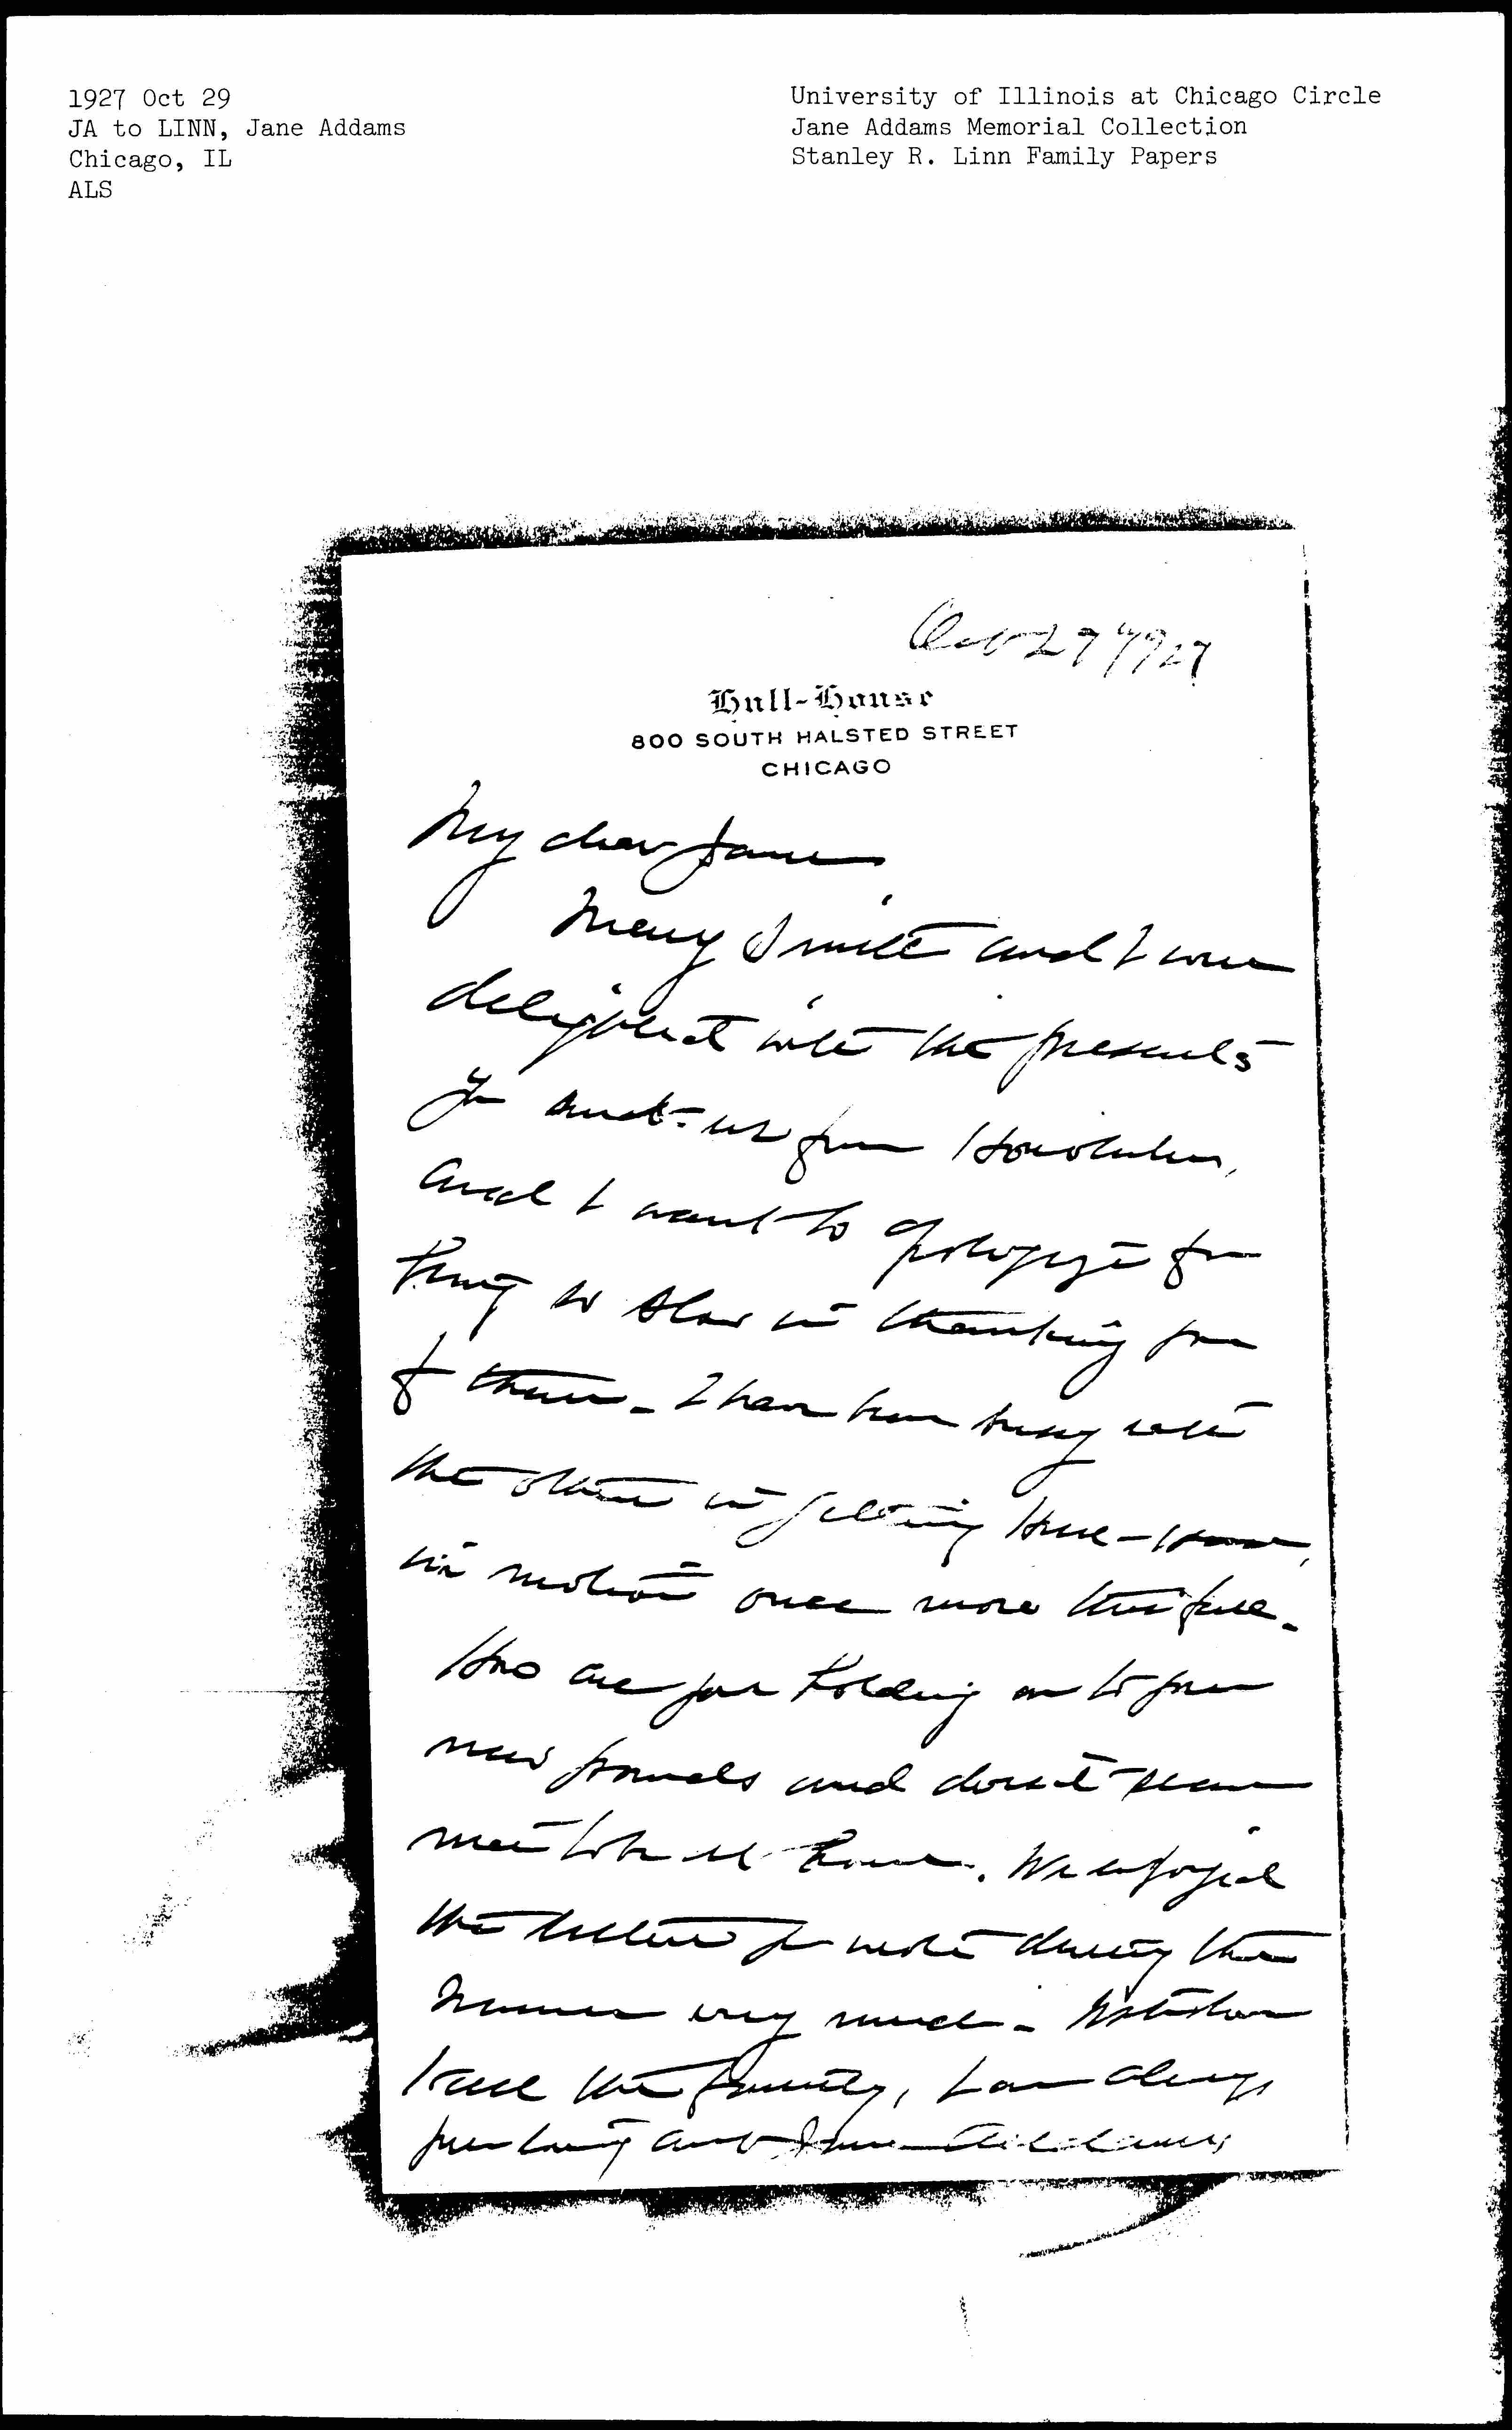 1927 Oct 29
JA to LINN, Jane Addams
Chicago, IL
ALS
University of Illinois at Chicago Circle
Jane Addams Memorial Collection
Stanley R. Linn Family Papers
Oct 29" 1927
Hull-House
800 SOUTH HALSTED STREET
CHICAGO
My dear Jane
Mary Smith and I were
delighted with the presents
you sent us from Honolulu,
and I want to apologize for
being so slow in thanking you
for them. I have been busy with
the others in getting Hull-House,
in motion once more this fall.
How are you holding on to your
new pounds and doesn't
to be at home. We enjoyed
the letters you wrote during the
summer very much. With love
to all the family, I am always
your loving aunt Jane Addams